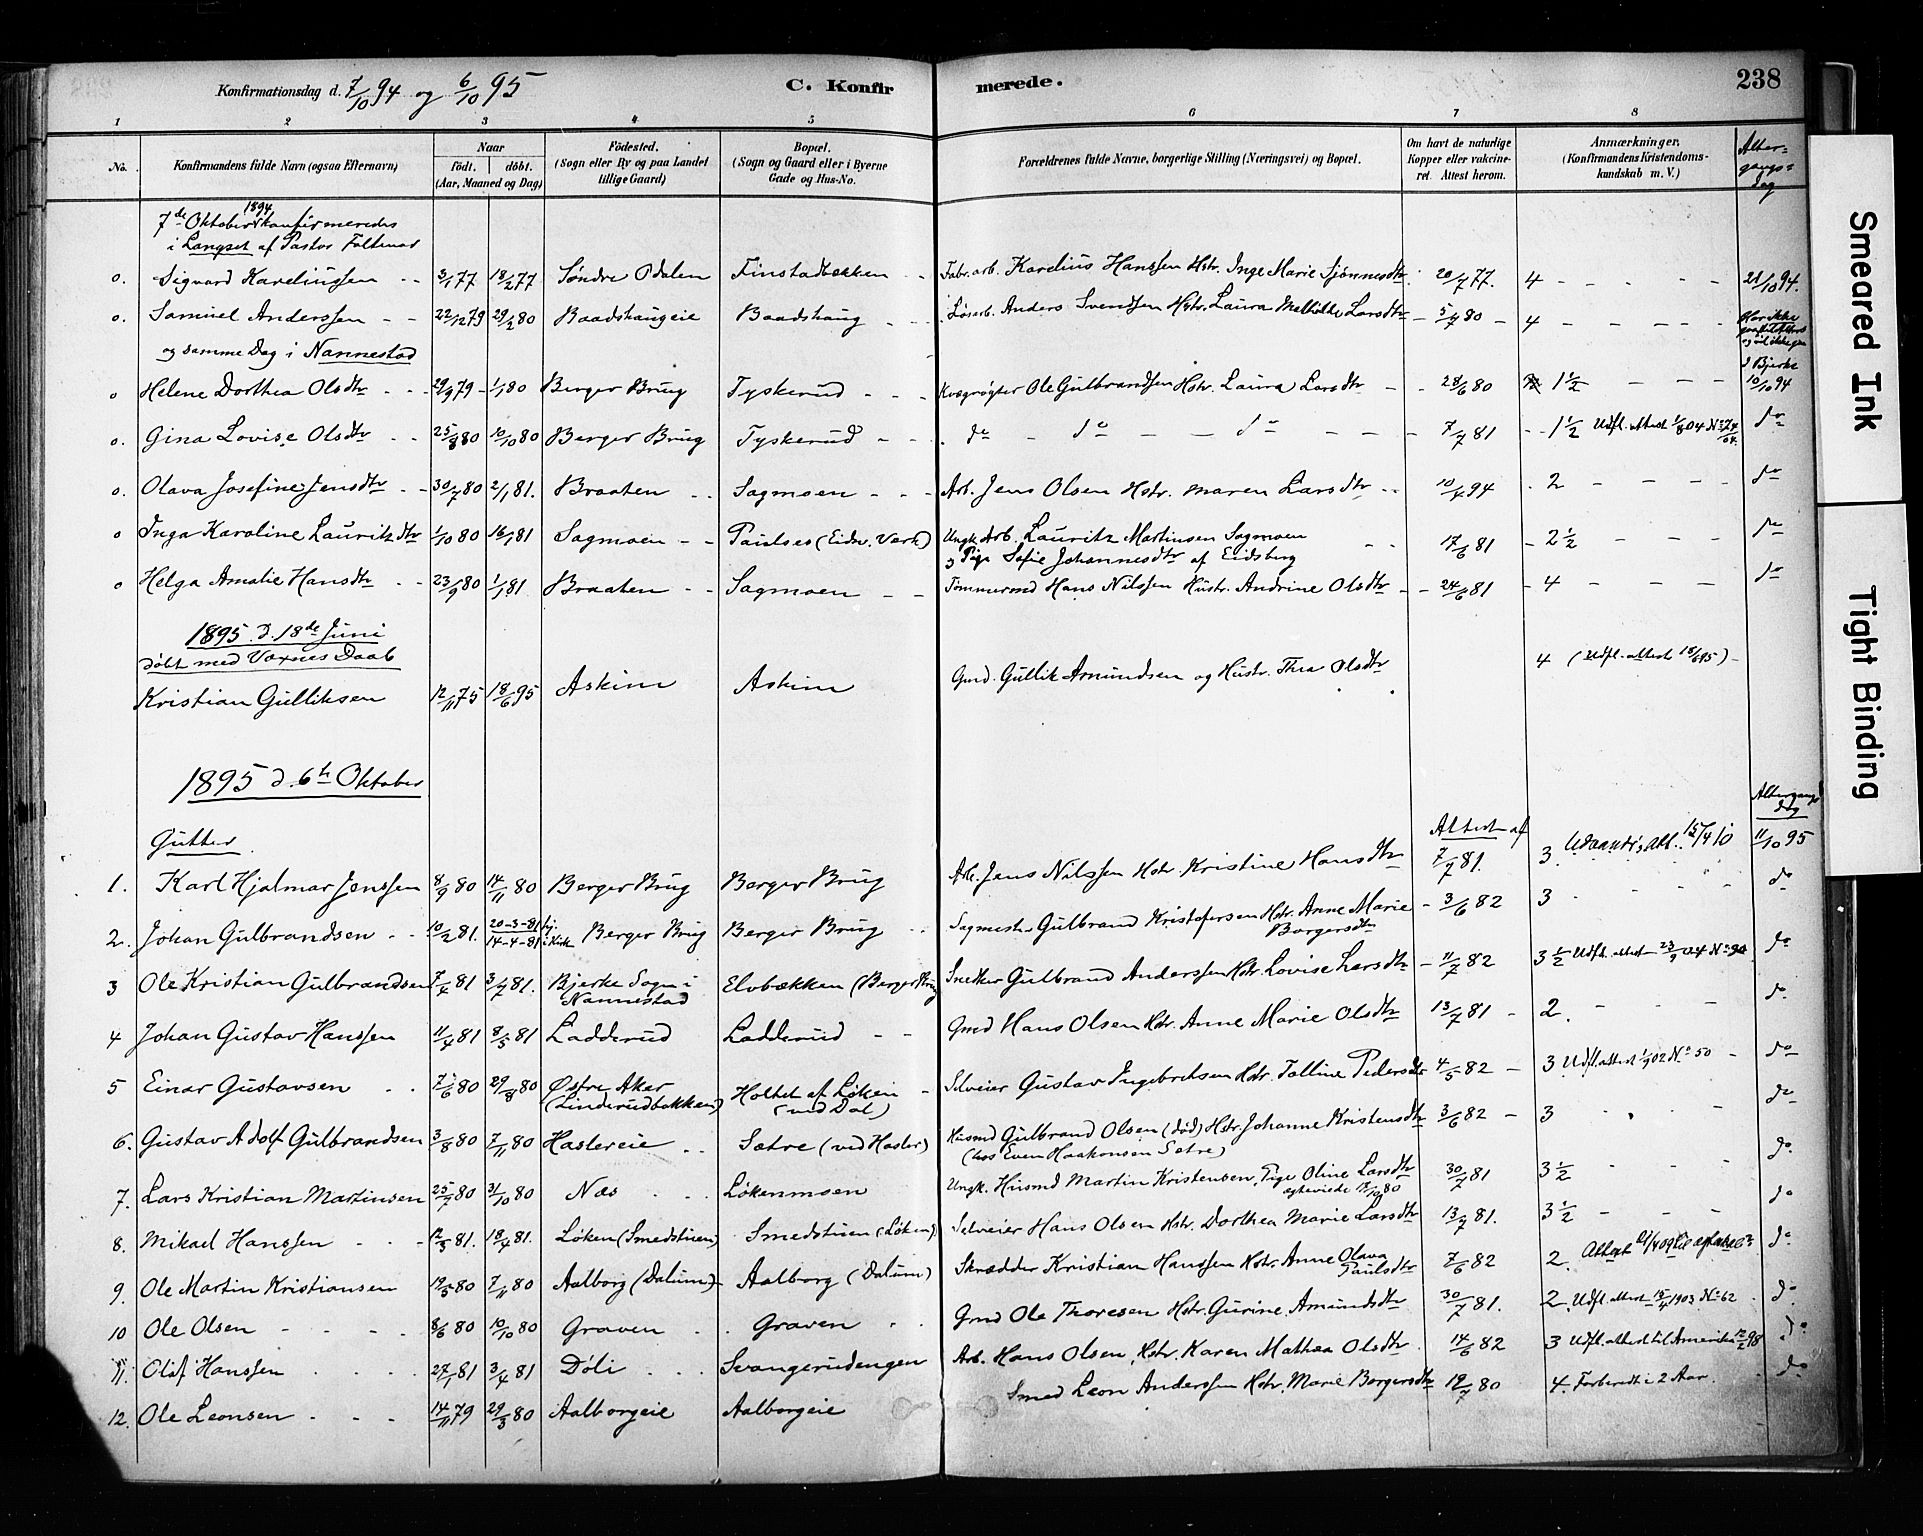 Konfirmationsdag d. 7/10 94 og 6/10 95
C. Konfirmerede.
238
1 2 3 4 5 6 7 8
No.
Konfirmandens fulde Navn (ogsaa Efternavn)
Naar
födt. döbt.
(Aar, Maaned og Dag)
Födested.
(Sogn eller By og paa Landet tillige Gaard)
Bopæl.
(Sogn og Gaard eller i Byerne Gade og Hus-No.
Forældrenes fulde Navne, borgerlige Stilling (Næringsvei) og Bopæl.
Om havt de naturlige Kopper eller vakcineret. Attest herom.
Anmærkninger.
(Konfirmandens Kristendomskundskab m. V.)
Altergangsdag
7de Oktober 1894 konfirmeredes
i Langset af Pastor
o. Sigvard Kareliussen 3/1 77 18/2 77 Søndre Odalen Finstadbækken Fabr.arb. Karelius Hanssen Hstr. Inge Marie 20/7 77. 4 21/10 94.
o. Samuel Anderssen 22/12 79 29/2 80 Baadshaugeie Baadshaug Løsarb. Anders Svendsen Hstr. Laura Mathilde Larsdtr 5/7 80 4 Har ikke
og samme Dag i Nannestad
I Bjerke
o Helene Dorthea Olsdtr 29/9 79 1/1 80 Berger Brug Tyskerud Kvægrøgter Ole Gulbrandsen Hstr. Laura Larsdtr 28/6 80 1 1/2 10/10 94
o. Gina Lovise Olsdtr 25/8 80 10/10 80 Berger Brug Tyskerud do do do 7/7 81 1 1/2 Udfl. attest 1/8 04 No 24/04. do
o. Olava Josefine Jensdtr 30/7 80 2/1 81. Braaten Sagmoen Arb. Jens Olsen Hstr. Maren Larsdtr 10/4 94 2 do
o Inga Karoline Lauritzdtr 1/10 80 16/1 81 Sagmoen (Eidsv. Værk) Ungk. Arb. Lauritz Martinsen Sagmoen 17/6 81 2 1/2 do
og Pige Sofie Johannesdtr af Eidsberg
o Helga Amalie Hansdtr 23/9 80 1/1 81 Braaten Sagmoen Tømmermd Hans Nilssen Hustr. Andrine Olsdtr 24/6 81 4 do
1895 d. 18de Juni
døbt med Voxnes Daab
Kristian Gulliksen 12/11 75 18/6 95 Askim Askim Gmd. Gullik Amundsen og Hustr. Thea Olsdtr 4 (Udfl. attest 18/6 95)
1895 d. 6te Oktober
Gutter
Attest af
Altergangsdag
1. Karl Hjalmar Jenssen 8/9 80 14/11 80 Berger Brug Berger Brug Arb. Jens Nilssen Hstr. Kristine Hansdtr 7/7 81. 3 att. 15/4 10 11/10 95
2. Johan Gulbrandsen 10/2 81. 20-3-81 hj. 14-4-81 i Kirk Berger Brug Berger Brug Sagmester Gulbrand Kristofersen Hstr. Anne Marie Borgersdtr 3/6 82 3 do
3 Ole Kristian Gulbrandsen 7/4 81 3/7 81. Bjerke Sogn i Nannestad Elvbækken (Berger Brug) Snekker Gulbrand Anderssen Hstr. Lovise Larsdtr 11/7 82 3 1/2 Udfl. attest 23/9 04 No 90 do
4 Johan Gustav Hanssen 11/4 81 8/5 81 Ladderud Ladderud Gmd Hans Olsen Hstr. Anne Marie Olsdtr 13/7 81 2. do.
5 Einar Gustavsen 7/6 80 29/8 80 Østre Aker (Linderudbakken) Holtet af Løken (ved Dal) Selveier Gustav Ingebretsen Hstr. Talline Pedersdtr 4/5 82 3 Udfl. attest 1/9 02 No 50 do
6. Gustav Adolf Gulbrandsen 3/8 80 7/11 80 Haslereie Sætre (ved Hasler) Husmd Gulbrand Olsen (død) Hstr Johanne Kristensdtr 3/6 82 3 do
(hos Even Haakonsen Sætre)
7. Lars Kristian Martinsen 25/7 80 31/10 80 Næs Løkenmoen Ungk. Husmd Martin Kristensen, Pige Oline Larsdtr 30/7 81 3 1/2 do.
ægteviede 17/10 80
8. Mikael Hanssen 12/3 81. 18/4 81. Løken (Smedstuen) Smedstuen (Løken) Selveier Hans Olsen Hstr. Dorthea Marie Larsdtr 13/7 81. 3 1/2 do
9. Ole Martin Kristiansen 19/5 80 7/11 80 Aalborg (Dalum) Aalborg (Dalum) Skrædder Kristian Hanssen Hstr. Anne Olava Paulsdtr 7/6 82 2. Attest do
10 Ole Olsen 8/6 80 10/10 80 Graven Graven Gmd Ole Thoresen Hstr. Gurine Amundsdtr 30/7 81. 2 Udfl. attest 15/4 1903 No 62 do.
11. Olaf Hanssen 27/1 81 3/4 81 Døli Svangerudengen Arb. Hans Olsen, Hstr. Karen Mathea Olsdtr 14/6 82 3 Udfl. attest til Amerika 12/2 98 do
12. Ole Leonsen 14/11 79 29/3 80 Aalborgeie Aalborgeie Smed Leon Anderssen Hstr. Marie Borgersdtr 19/7 80 4. Forberedt i 2 Aar. do
Smeared Ink
Tight Binding